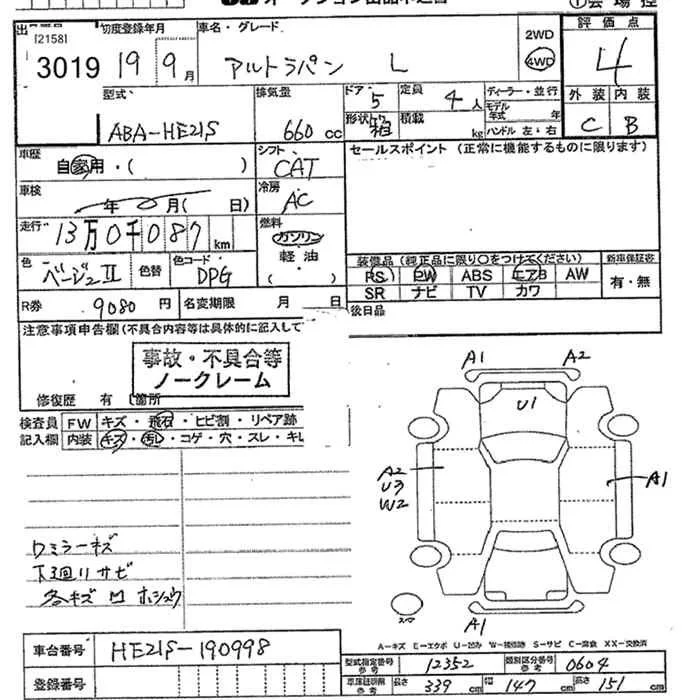 出品番号 初度登録年月 車名・グレード 2WD 評価点
[2158]
3019 19年 9月 アルトラパン L 4WD 4
型式 排気量 ドア・ 定員 ディーラー・並行 外装 内装
5 4人 モデル年式 年
ABA-HE21S 660cc 形状 箱 積載 kg ハンドル 左・右 C B
車歴 シフト セールスポイント (正常に機能するものに限ります)
自家用・( ) CAT
車検 冷房
年 月( 日) AC
走行 燃料
13万0千087km ガソリン
軽油
( )
装備品 (純正品に限り○をつけてください) 新車保証書
色 色替 色コード PS PW ABS エアB AW 有・無
ベージュII DPG SR ナビ TV カワ
R券 9080円 名変期限 月 日 後日品
注意事項申告欄(不具合内容等は具体的に記入して
事故・不具合等
ノークレーム
修復歴 有 箇所
検査員 FW キズ・飛石・ヒビ割・リペア跡
記入欄 内装 キズ・汚レ・コゲ・穴・スレ・キレ
A1 A2
U1
A2
U3
W2
A1
ワミラーキズ
下廻リサビ
各キズ凹ホシュウ
A1
A=キズ E=エクボ U=凹み W=補修跡 S=サビ C=腐食 XX=交換済
車台番号 HE21S-190998
型式指定番号 参考 12352 類別区分番号 参考 0604
登録番号
車庫証明用 参考 長さ 339cm 幅 147cm 高さ 151cm